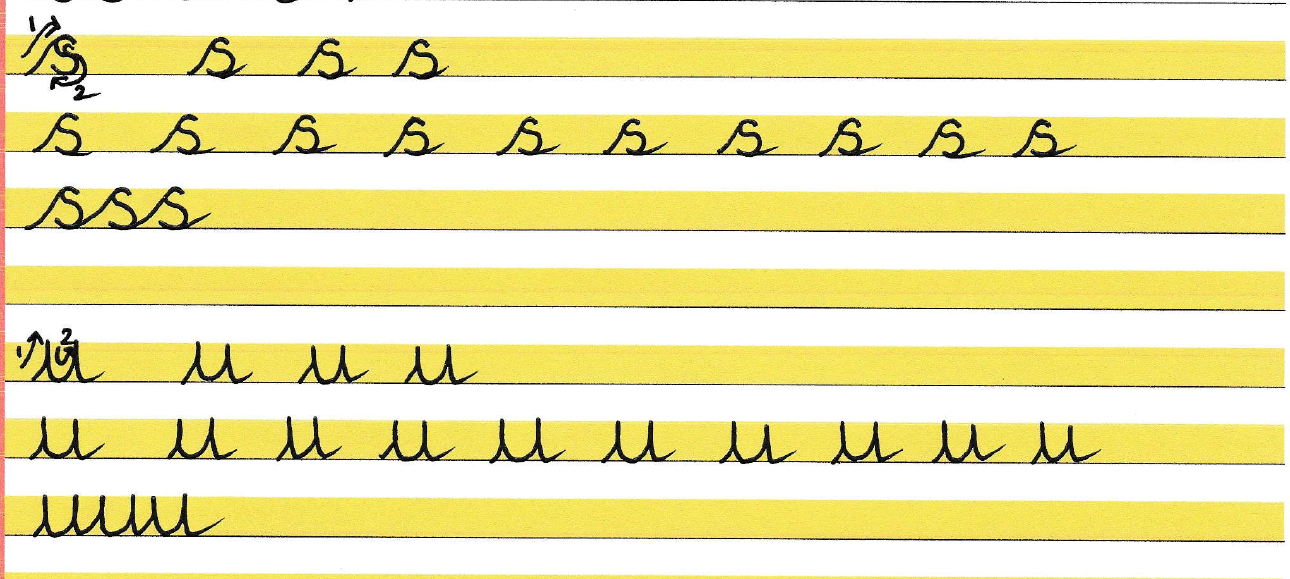 1 s 2 s s s
s s s s s s s s s s
sss
1 2 u u u u
u u u u u u u u u u
uuu